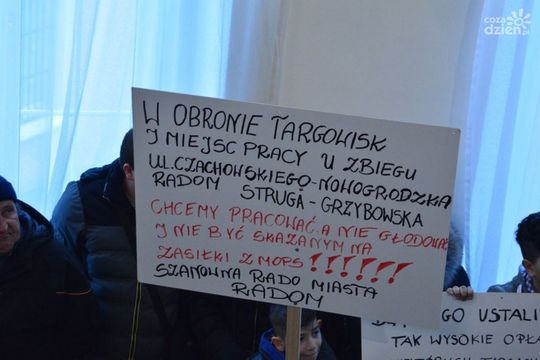 coza
dzien.pl
W OBRONIE TARGOWISK
I MIEJSC PRACY U ZBIEGU
UL.CZACHOWSKIEGO-NOWOGRODZKA
RADOM STRUGA-GRZYBOWSKA
CHCEMY PRACOWAĆ A NIE GŁODOWAĆ
I NIE BYĆ SKAZANYM NA
ZASIŁKI Z MOPS!!!!!!
SZANOWNA RADO MIASTA
RADOM
GO USTALI
TAK WYSOKIE OPŁA